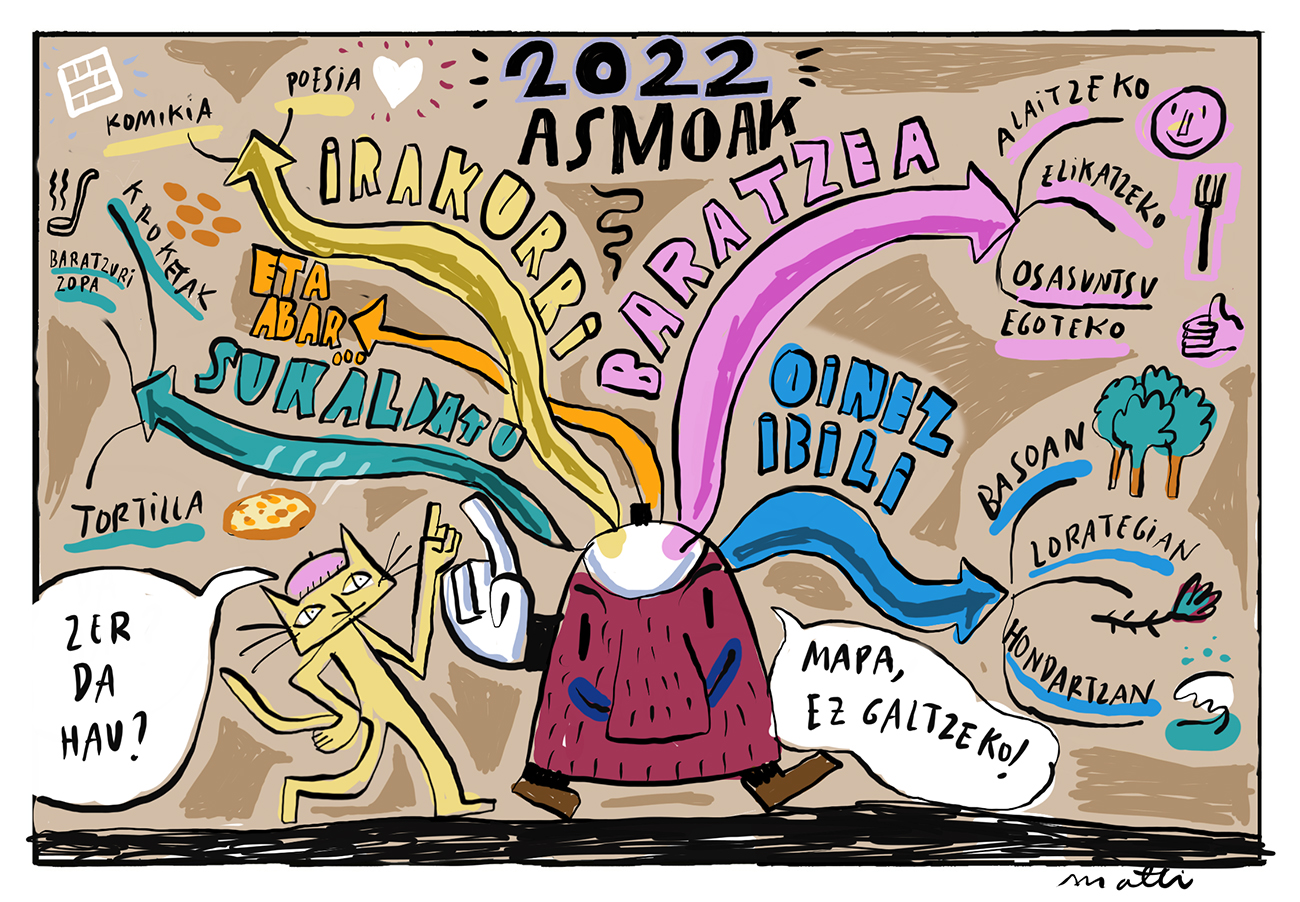 2022
ASMOAK
KOMIKIA
POESIA
IRAKURRI
BARATZEA
ALAITZEKO
ELIKATZEKO
OSASUNTSU
EGOTEKO
KROKETAK
BARATZURI
ZOPA
ETA
ABAR...
SUKALDATU
TORTILLA
OINEZ
IBILI
BASOAN
LORATEGIAN
HONDARTZAN
ZER
DA
HAU?
MAPA,
EZ GALTZEKO!